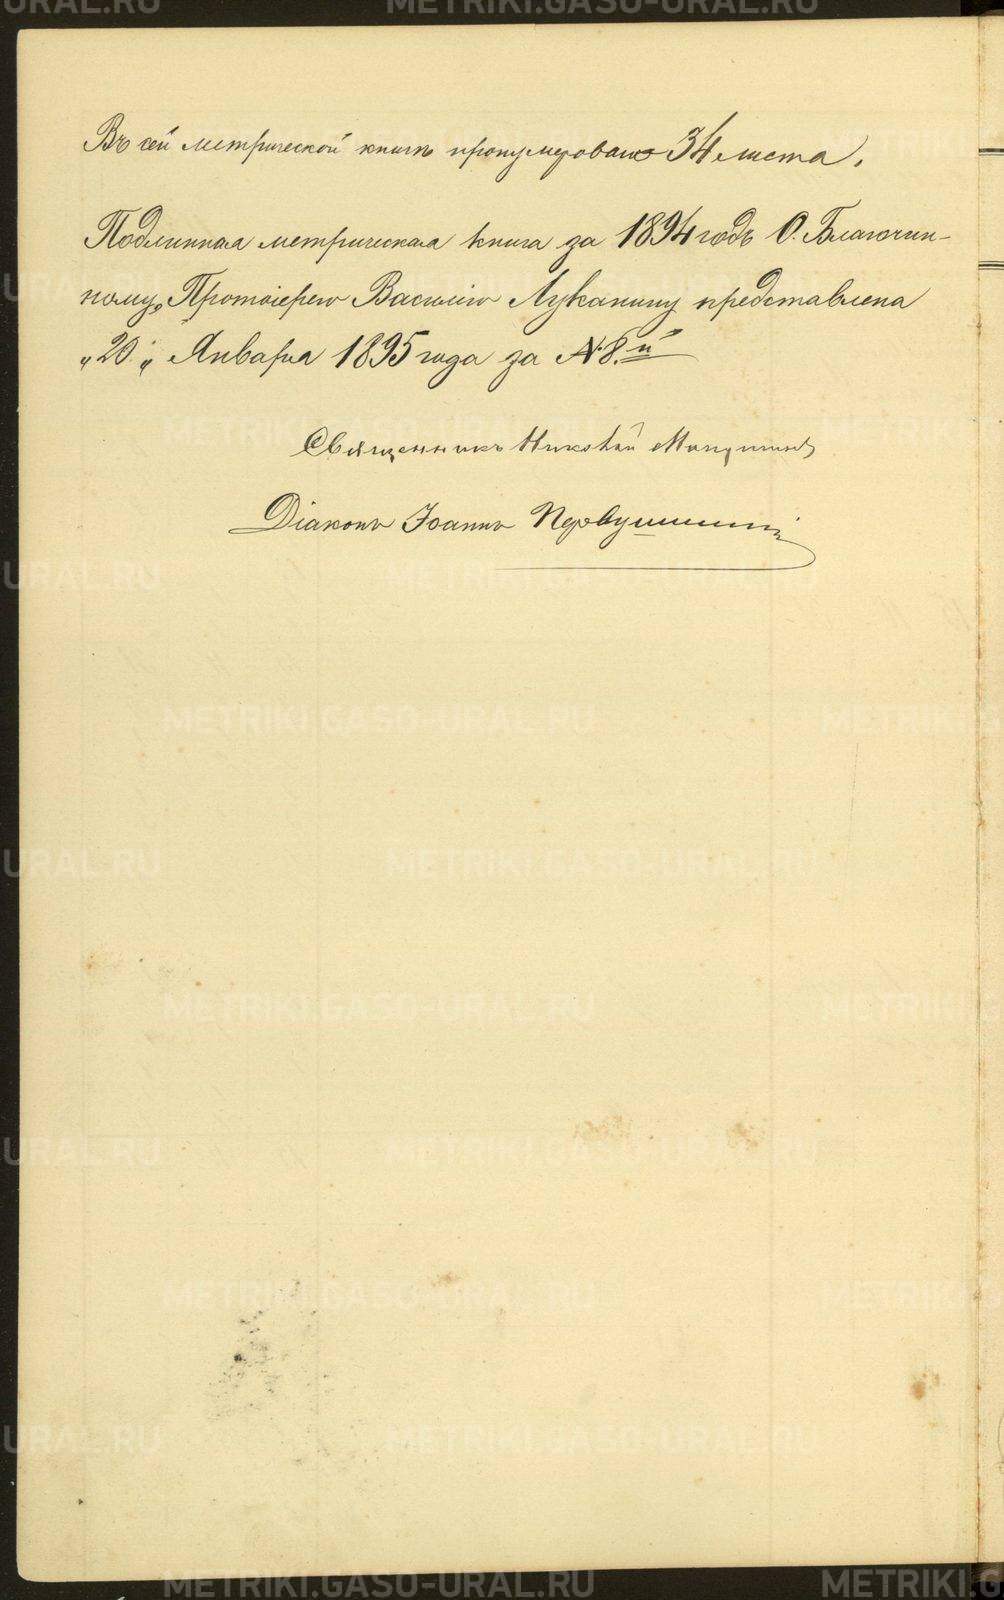 Въ сей метрической книгѣ пронумеровано 34 листа.
Подлинная метрическая книга за 1894 годъ О. Благочин-
ному, Протоіерею Василію Луканину представлена
„20„ Января 1895 года за №8.й
Священникъ Николай
Діаконъ Іоаннъ Первушинъ
METRIKI.GASO-URAL.RU